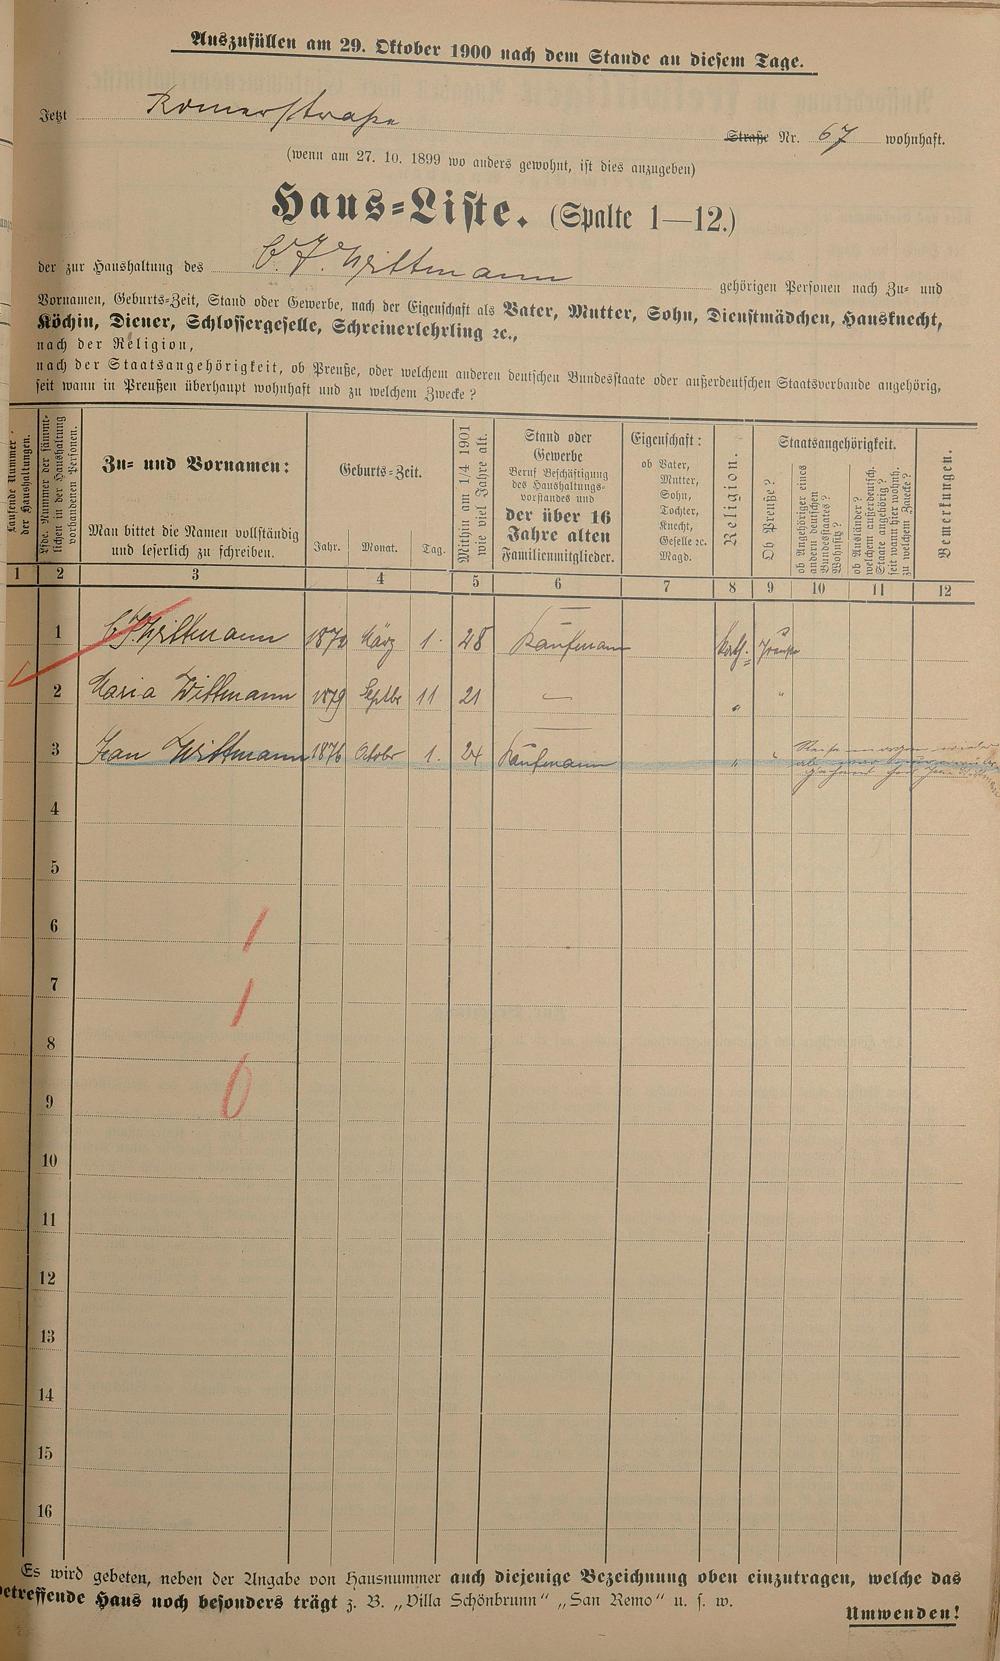 Auszufüllen am 29. Oktober 1900 nach dem Stande an diesem Tage.
Jetzt Römerstraße Straße Nr. 67 wohnhaft.
(wenn am 27. 10. 1899 wo anders gewohnt, ist dies anzugeben)
Haus=Liste. (Spalte 1—12.)
der zur Haushaltung des C. J. Wittmann gehörigen Personen nach Zu= und
Vornamen, Geburts=Zeit, Stand oder Gewerbe, nach der Eigenschaft als Vater, Mutter, Sohn, Dienstmädchen, Hausknecht,
Köchin, Diener, Schlossergeselle, Schreinerlehrling ꝛc.,
nach der Religion,
nach der Staatsangehörigkeit, ob Preuße, oder welchem anderen deutschen Bundesstaate oder außerdeutschen Staatsverbande angehörig,
seit wann in Preußen überhaupt wohnhaft und zu welchem Zwecke?
Laufende Nummer der Haushaltungen.
Lfde. Nummer der sämmt-
lichen in der Haushaltung
vorhandenen Personen.
Zu= und Vornamen:
Man bittet die Namen vollständig
und leserlich zu schreiben.
Geburts=Zeit.
Jahr. Monat. Tag.
Mithin am 1/4 1901
wie viel Jahre alt.
Stand oder
Gewerbe
Beruf Beschäftigung
des Haushaltungs-
vorstandes und
der über 16
Jahre alten
Familienmitglieder.
Eigenschaft:
ob Vater,
Mutter,
Sohn,
Tochter,
Knecht,
Geselle ꝛc.
Magd.
Religion.
Staatsangehörigkeit.
Ob Preuße?
ob Angehöriger eines
andern deutschen
Bundesstaates?
Wohnsitz?
ob Ausländer?
welchem außerdeutsch.
Staate angehörig?
seit wann hier wohnh.
zu welchem Zwecke?
Bemerkungen.
1 2 3 4 5 6 7 8 9 10 11 12
1 C. J. Wittmann 1872 März 1. 28 Kaufmann Kath. Preuße
2 Maria Wittmann 1879 Septbr 11 21 — " "
3 Jean Wittmann 1876 Octobr 1. 24 Kaufmann " "
4
5
6
7
8
9
10
11
12
13
14
15
16
1
1
0
Es wird gebeten, neben der Angabe von Hausnummer auch diejenige Bezeichnung oben einzutragen, welche das
betreffende Haus noch besonders trägt z. B. „Villa Schönbrunn“ „San Remo“ u. s. w.
Umwenden!